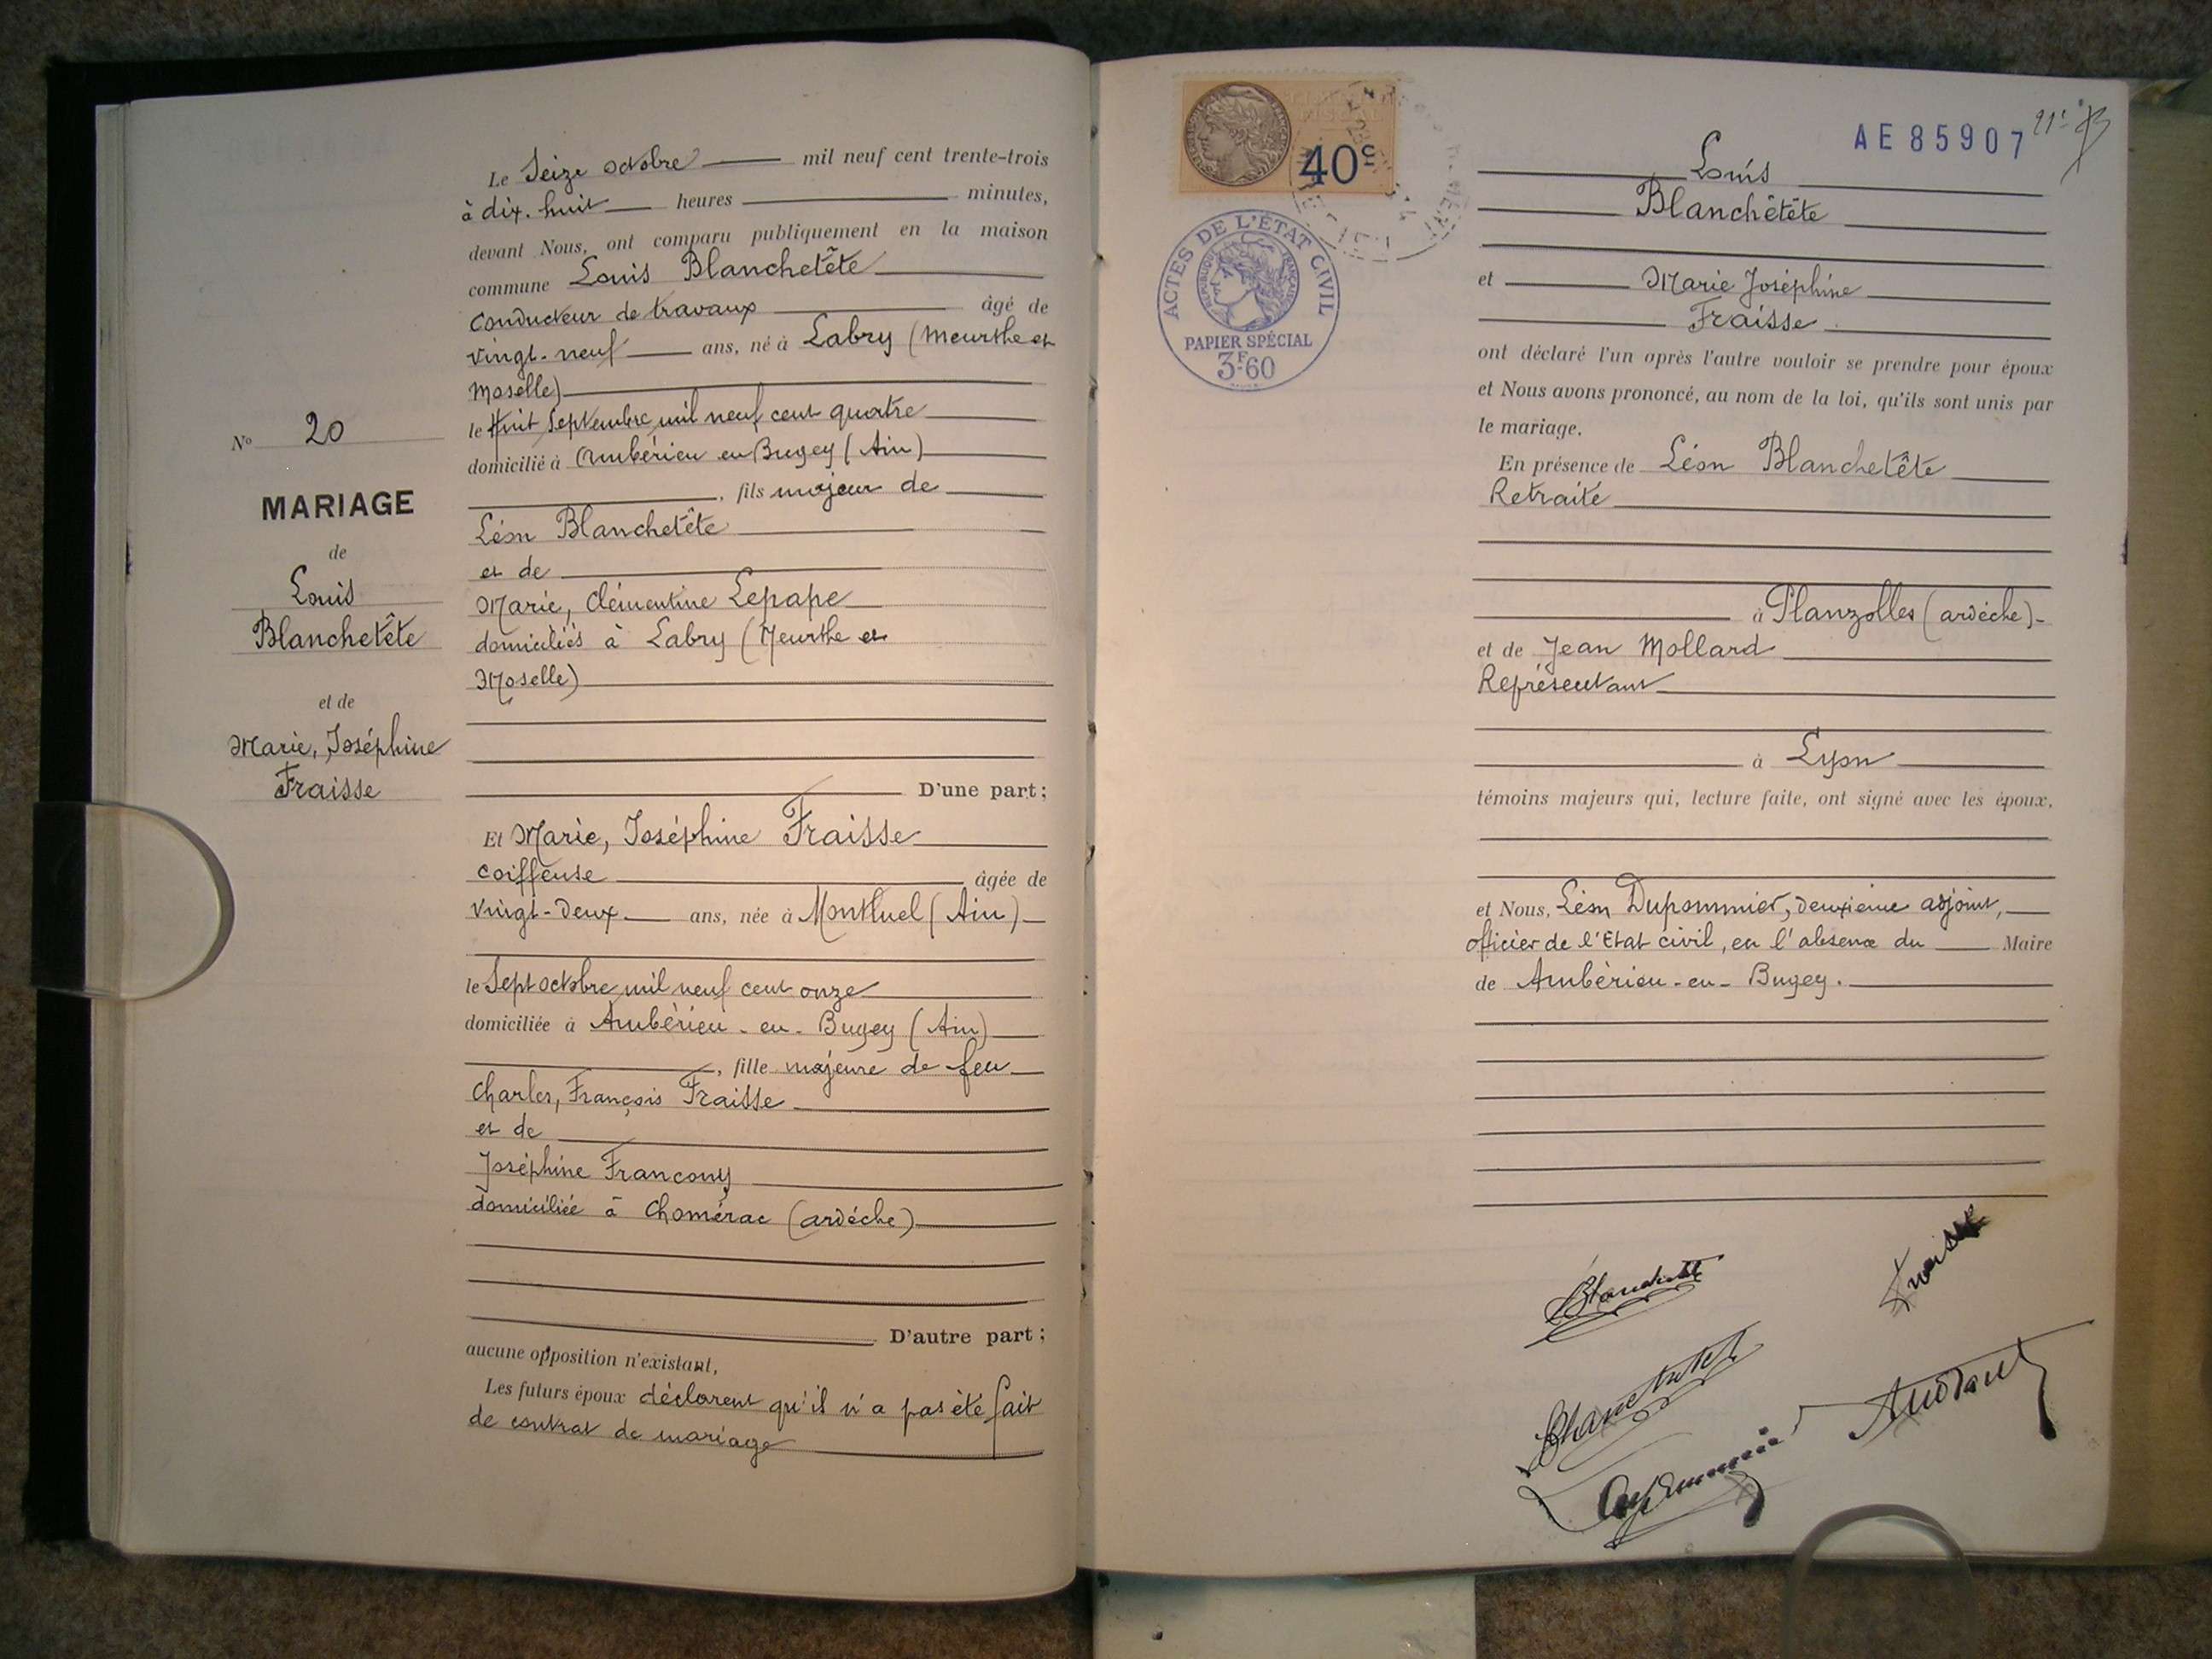 Le Seize octobre mil neuf cent trente-trois
à dix-huit heures minutes,
devant Nous, ont comparu publiquement en la maison
commune Louis Blanchetête
conducteur de travaux âgé de
vingt-neuf ans, né à Labry (Meurthe et
Moselle)
le Huit Septembre mil neuf cent quatre
domicilié à Ambérieu en Bugey (Ain)
, fils majeur de
Léon Blanchetête
et de
Marie, Clémentine Lepape
domiciliés à Labry (Meurthe et
Moselle)
D'une part;
Et Marie, Joséphine Fraisse
coiffeuse âgée de
vingt-deux ans, née à Montluel (Ain)
le Sept octobre mil neuf cent onze
domiciliée à Ambérieu-en-Bugey (Ain)
, fille majeure de feu
Charles, François Fraisse
et de
Joséphine Francony
domiciliée à Chomérac (ardéche)
D'autre part;
aucune opposition n'existant,
Les futurs époux déclarent qu'il n'a pas été fait
de contrat de mariage
No 20
MARIAGE
de
Louis
Blanchetête
et de
Marie, Joséphine
Fraisse
40c
ACTES DE L'ÉTAT CIVIL
RÉPUBLIQUE FRANÇAISE
PAPIER SPÉCIAL
3F60
AE 85907
Louis
Blanchêtête
et Marie Joséphine
Fraisse
ont déclaré l'un après l'autre vouloir se prendre pour époux
et Nous avons prononcé, au nom de la loi, qu'ils sont unis par
le mariage.
En présence de Léon Blanchetête
Retraité
à Planzolles (ardéche)-
et de Jean Mollard
Représentant
à Lyon
témoins majeurs qui, lecture faite, ont signé avec les époux,
et Nous, Léon Dupommier, deuxième adjoint,
officier de l'Etat civil, en l'absence du Maire
de Ambérieu-en-Bugey.
Fraisse